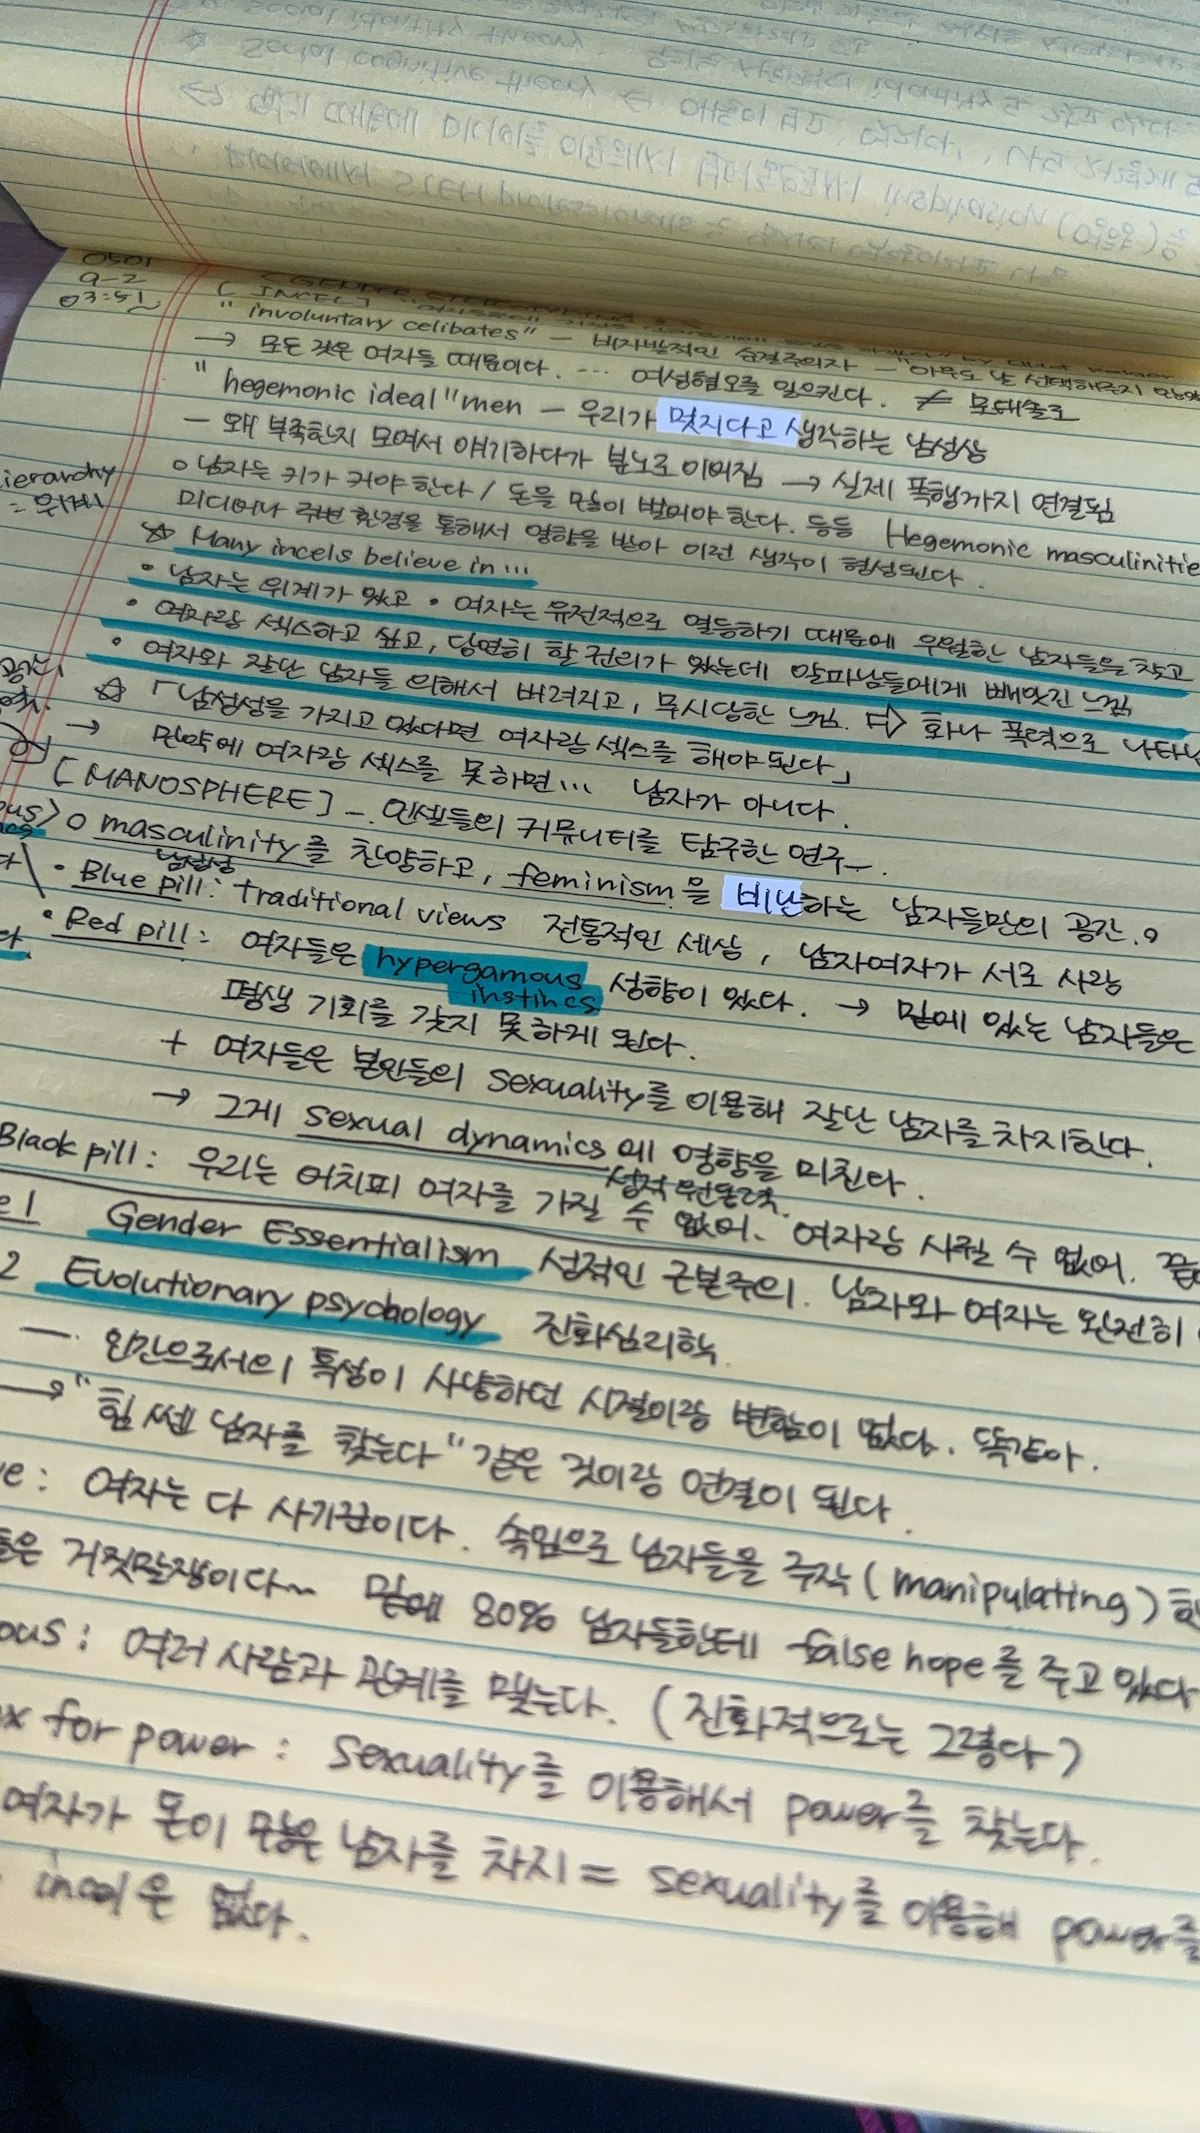 0501
9-2
03:51
[INCEL]
"involuntary celibates" — 비자발적인 순결주의자 — "아무도 날 선택해주지 않아
→ 모든 것은 여자들 때문이다. … 여성혐오를 일으킨다. ≠ 모태솔로
"hegemonic ideal" men — 우리가 멋지다고 생각하는 남성상
— 왜 부족한지 모여서 얘기하다가 분노로 이어짐 → 실제 폭행까지 연결됨
ierarchy
= 위계
○ 남자는 키가 커야 한다 / 돈을 많이 벌어야 한다. 등등 Hegemonic masculinitie
미디어나 주변 환경을 통해서 영향을 받아 이런 생각이 형성된다.
☆ Many incels believe in…
• 남자는 위계가 있고 • 여자는 유전적으로 열등하기 때문에 우월한 남자들을 찾고
• 여자랑 섹스하고 싶고, 당연히 할 권리가 있는데 알파남들에게 빼앗긴 느낌
• 여자와 잘난 남자들 의해서 버려지고, 무시당한 느낌. ⇨ 화나 폭력으로 나타남
☆「남성성을 가지고 있다면 여자랑 섹스를 해야 된다」
→ 만약에 여자랑 섹스를 못하면… 남자가 아니다.
[MANOSPHERE] — 인셀들의 커뮤니티를 탐구한 연구—
ous> ○ masculinity를 찬양하고, feminism을 비난하는 남자들만의 공간.
남성성
• Blue pill: traditional views 전통적인 세상, 남자여자가 서로 사랑
• Red pill: 여자들은 hypergamous instincs 성향이 있다. → 밑에 있는 남자들은
평생 기회를 갖지 못하게 된다.
+ 여자들은 본인들의 sexuality를 이용해 잘난 남자를 차지한다.
→ 그게 sexual dynamics에 영향을 미친다.
성적 원동력
Black pill: 우리는 어차피 여자를 가질 수 없어. 여자랑 사귈 수 없어. 끝
e1 Gender Essentialism 성적인 근본주의. 남자와 여자는 완전히
2 Evolutionary psychology 진화심리학.
— 인간으로서의 특성이 사냥하던 시절이랑 변함이 없다. 똑같아.
→ "힘 쎈 남자를 찾는다" 같은 것이랑 연결이 된다.
ve: 여자는 다 사기꾼이다. 속임으로 남자들을 주작(manipulating)
들은 거짓말쟁이다~ 밑에 80% 남자들한테 false hope를 주고 있다
ous: 여러 사람과 관계를 맺는다. (진화적으로는 그렇다)
x for power: sexuality를 이용해서 power를 찾는다.
여자가 돈이 많은 남자를 차지 = sexuality를 이용해 power를
incel은 없다.